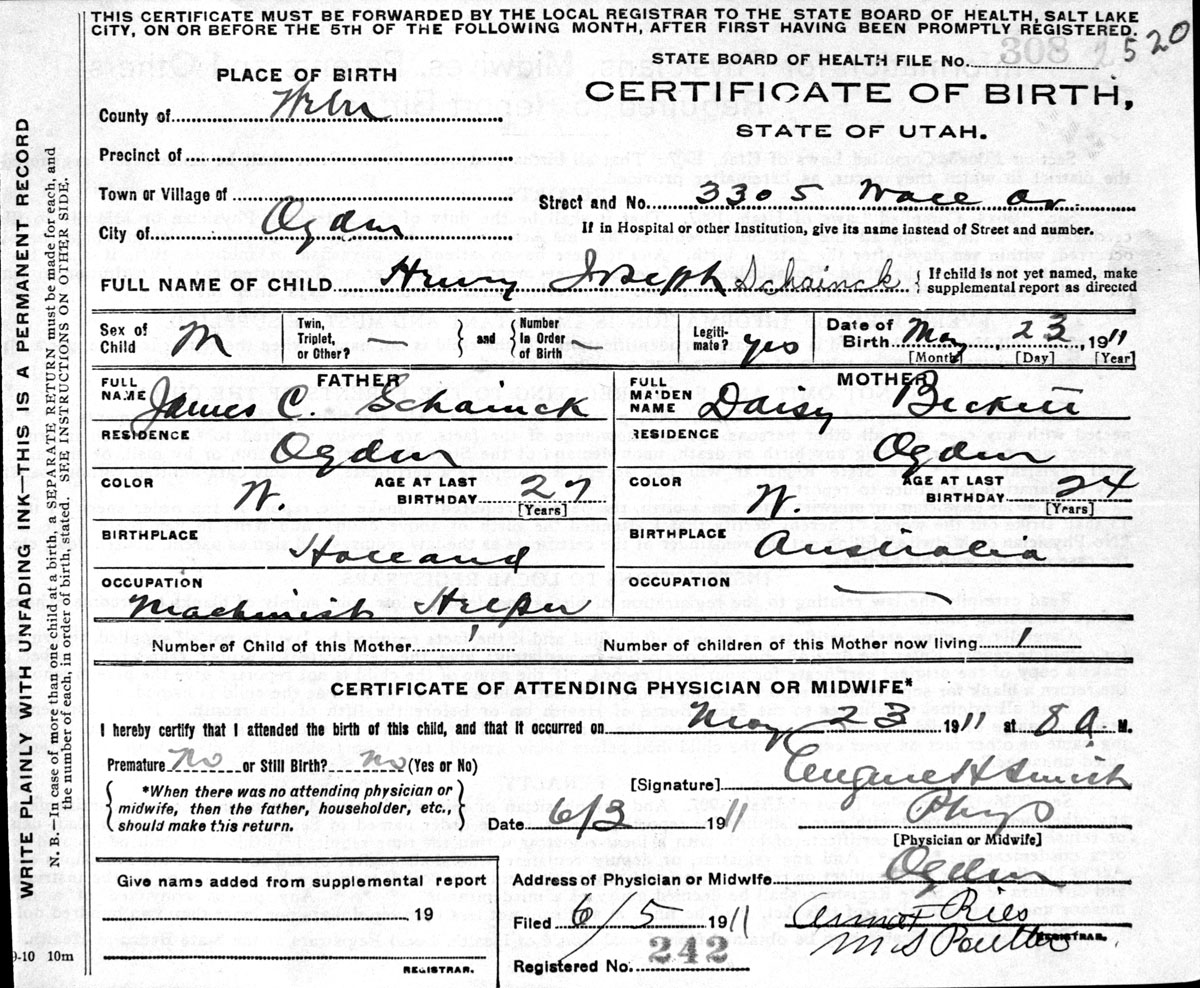 THIS CERTIFICATE MUST BE FORWARDED BY THE LOCAL REGISTRAR TO THE STATE BOARD OF HEALTH, SALT LAKE
CITY, ON OR BEFORE THE 5TH OF THE FOLLOWING MONTH, AFTER FIRST HAVING BEEN PROMPTLY REGISTERED.
STATE BOARD OF HEALTH FILE No. 308 2520
PLACE OF BIRTH
CERTIFICATE OF BIRTH,
STATE OF UTAH.
County of Weber
Precinct of
Town or Village of
Street and No. 3305 Wall av
City of Ogden
If in Hospital or other Institution, give its name instead of Street and number.
FULL NAME OF CHILD Henry Joseph Schainck { If child is not yet named, make
supplemental report as directed
Sex of Child M Twin, Triplet, or Other? } and { Number in Order of Birth Legiti-mate? yes Date of Birth May 23 1911
[Month] [Day] [Year]
FATHER
FULL NAME James C. Schainck
RESIDENCE Ogden
COLOR W. AGE AT LAST BIRTHDAY 27 [Years]
BIRTHPLACE Holland
OCCUPATION Machinist Helper
MOTHER
FULL MAIDEN NAME Daisy Beckett
RESIDENCE Ogden
COLOR W. AGE AT LAST BIRTHDAY 24 [Years]
BIRTHPLACE Australia
OCCUPATION —
Number of Child of this Mother 1 Number of children of this Mother now living 1
CERTIFICATE OF ATTENDING PHYSICIAN OR MIDWIFE*
I hereby certify that I attended the birth of this child, and that it occurred on May 23 1911 at 8 a. M.
Premature No or Still Birth? No (Yes or No)
*When there was no attending physician or
midwife, then the father, householder, etc.,
should make this return.
[Signature] Eugene H Smith
Date 6/3 1911 Phys
[Physician or Midwife]
Give name added from supplemental report
19
REGISTRAR.
Address of Physician or Midwife Ogden
Filed 6/5 1911
REGISTRAR.
Registered No. 242
9-10 10m
WRITE PLAINLY WITH UNFADING INK—THIS IS A PERMANENT RECORD
N. B.—In case of more than one child at a birth, a SEPARATE RETURN must be made for each, and
the number of each, in order of birth, stated. SEE INSTRUCTIONS ON OTHER SIDE.